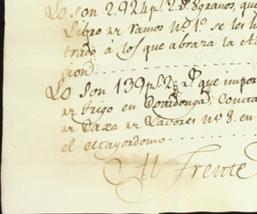 Lo son 2.924 p.s 2 r.s 8 granos, que
Libro de ramos nº 1º se les h
trado á los que abraza la
cion
Lo son 139 p.s 2 que impor
de trigo en contra
de Taxa de Lavores nº 8. en
el Mayordomo
Al Frente